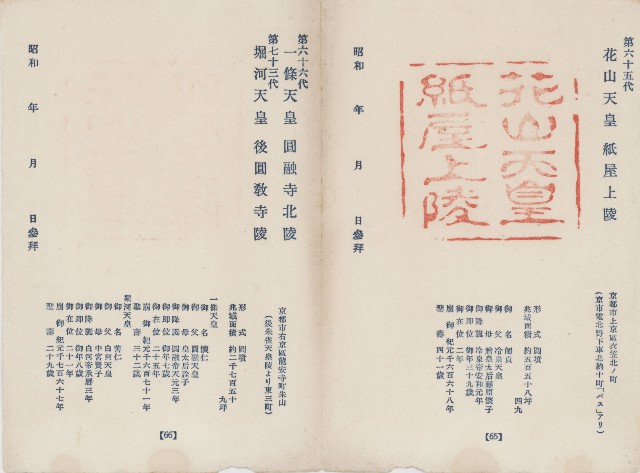 第六十五代
花山天皇 紙屋上陵
花山天皇
紙屋上陵
昭和 年 月 日參拜
京都市上京區衣笠北ノ町
(京市電北野下車北約十町「バス」アリ)
形式 圓墳
兆域面積 約五百五十八坪
四九
御名 師貞
御父 冷泉天皇
御母 贈皇太后懷子
御降誕 冷泉帝安和元年
御在位 二年
崩御 紀元千六百六十八年
聖壽 四十一歲
【65】
第六十六代
一條天皇 圓融寺北陵
第七十三代
堀河天皇 後圓教寺陵
昭和 年 月 日參拜
京都市右京區龍安寺町朱山
(後朱雀天皇陵より東三町)
形式 圓墳
兆域面積 約二千七百五十
九坪
一條天皇
御名 懷仁
御父 圓融天皇
御母 皇太后詮子
御降誕 圓融帝天元三年
御即位 御年七歲
御在位 二十五年
崩御 紀元千六百七十一年
聖壽 三十二歲
堀河天皇
御名 善仁
御父 白河天皇
御母 中宮賢子
御降誕 白河帝承曆三年
御即位 御年八歲
御在位 二十一年
崩御 紀元千七百六十七年
聖壽 二十九歲
【66】